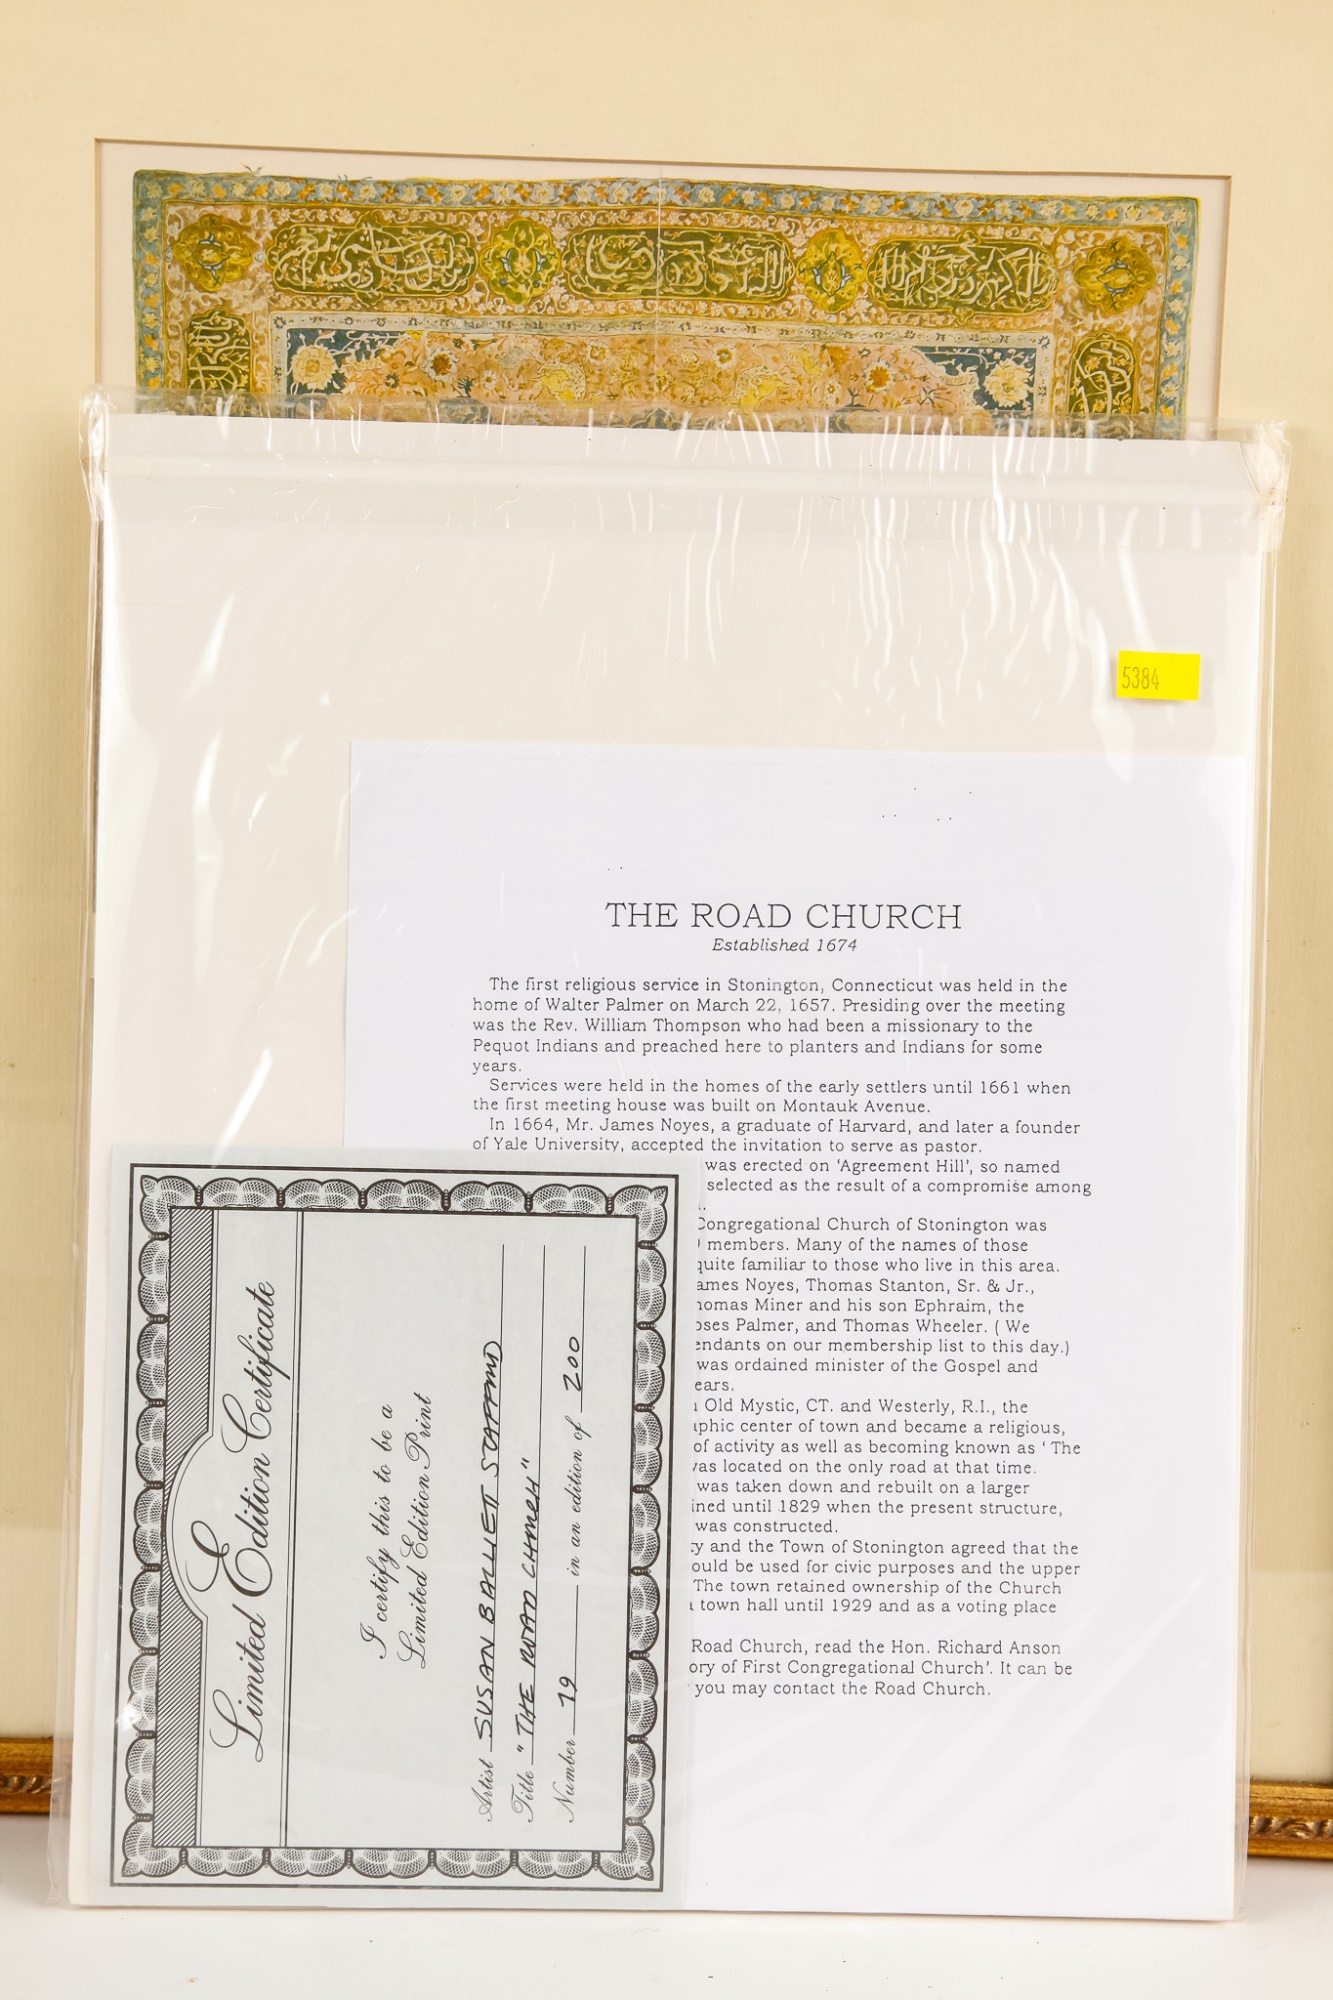 5384
THE ROAD CHURCH
Established 1674
The first religious service in Stonington, Connecticut was held in the
home of Walter Palmer on March 22, 1657. Presiding over the meeting
was the Rev. William Thompson who had been a missionary to the
Pequot Indians and preached here to planters and Indians for some
years.
Services were held in the homes of the early settlers until 1661 when
the first meeting house was built on Montauk Avenue.
In 1664, Mr. James Noyes, a graduate of Harvard, and later a founder
of Yale University, accepted the invitation to serve as pastor.
was erected on 'Agreement Hill', so named
selected as the result of a compromise among
Congregational Church of Stonington was
members. Many of the names of those
quite familiar to those who live in this area.
ames Noyes, Thomas Stanton, Sr. & Jr.,
homas Miner and his son Ephraim, the
oses Palmer, and Thomas Wheeler. ( We
endants on our membership list to this day.)
was ordained minister of the Gospel and
ears.
Old Mystic, CT. and Westerly, R.I., the
aphic center of town and became a religious,
of activity as well as becoming known as ' The
was located on the only road at that time.
was taken down and rebuilt on a larger
ined until 1829 when the present structure,
was constructed.
ty and the Town of Stonington agreed that the
ould be used for civic purposes and the upper
The town retained ownership of the Church
town hall until 1929 and as a voting place
Road Church, read the Hon. Richard Anson
ory of First Congregational Church'. It can be
you may contact the Road Church.
Limited Edition Certificate
I certify this to be a
Limited Edition Print
Artist SUSAN BALLIETT STAFFORD
Title "THE ROAD CHURCH"
Number 19 in an edition of 200